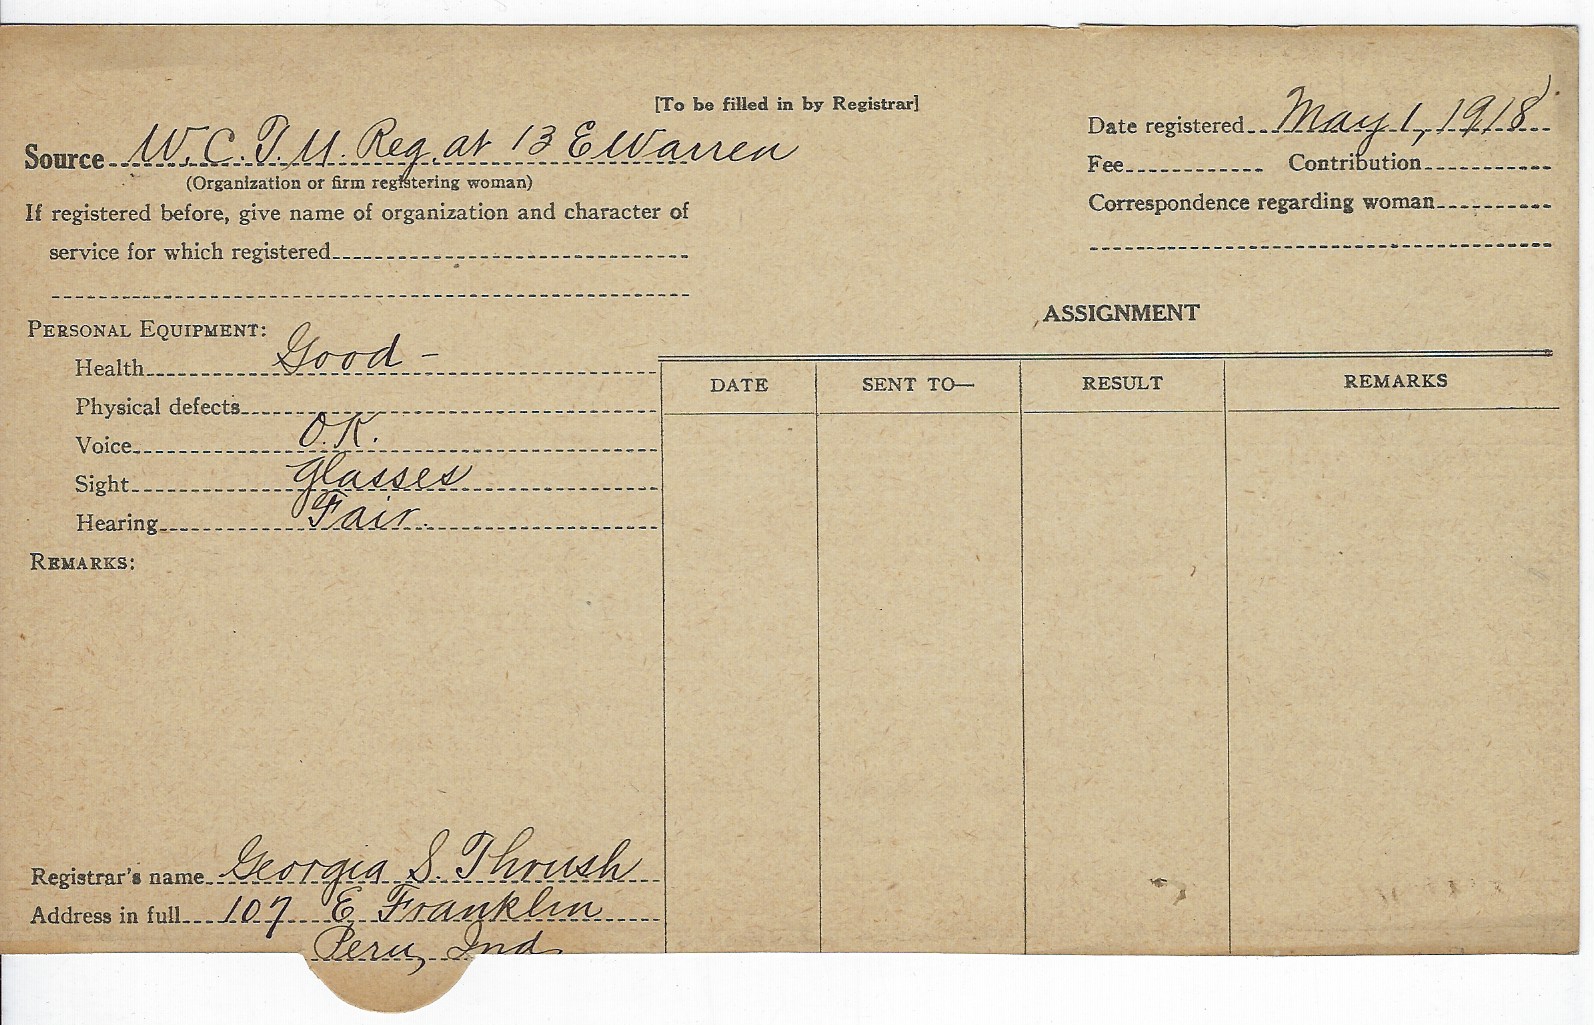 [To be filled in by Registrar]
Source W. C. T. U. Reg. at 13 E Warren
(Organization or firm registering woman)
If registered before, give name of organization and character of
service for which registered
Date registered May 1, 1918
Fee Contribution
Correspondence regarding woman
PERSONAL EQUIPMENT:
Health Good -
Physical defects
Voice O.K.
Sight Glasses
Hearing Fair.
REMARKS:
ASSIGNMENT
DATE SENT TO— RESULT REMARKS
Registrar's name Georgia S. Thrush
Address in full 107 E Franklin
Peru, Ind